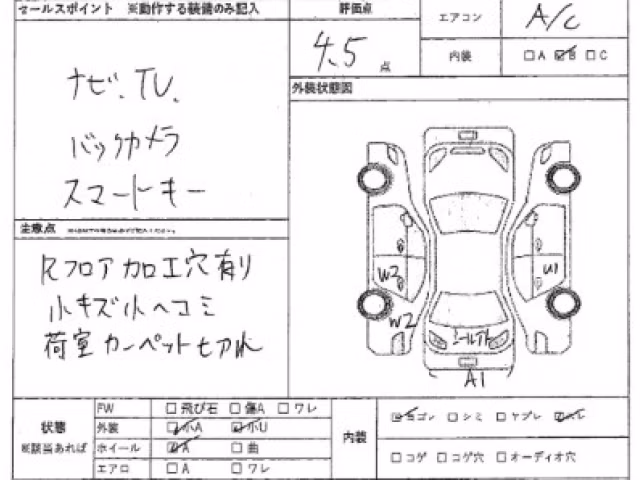 セールスポイント ※動作する装備のみ記入
評価点
エアコン A/C
4.5 点
内装 □A ☑B □C
ナビ、TV、
バックカメラ
スマートキー
外装状態図
注意点
Rフロア加工穴有り
小キズ小ヘコミ
荷室カーペットヤブレ
W3
W2
U1
シールアト
A1
状態
※該当あれば
FW □飛び石 □傷A □ワレ
外装 ☑小A ☑小U
ホイール ☑A □曲
エアロ □A □ワレ
内装
☑ヨゴレ □シミ □ヤブレ ☑スレ
□コゲ □コゲ穴 □オーディオ穴